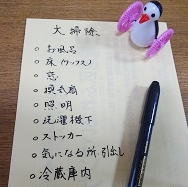 大掃除
○お風呂
○床(ワックス)
○窓
○換気扇
○照明
○洗濯機下
○ストッカー
○気になる所、引出し
○冷蔵庫内